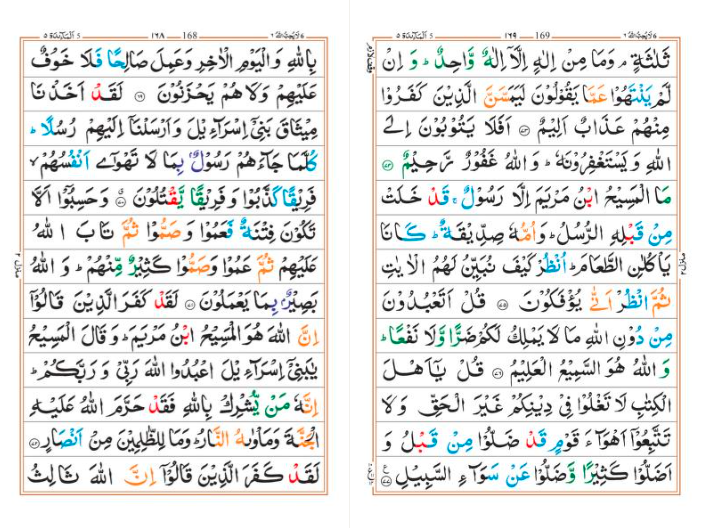 المآئدة ٥ 5 ١٦٨ 168 لا يحب الله ٦
بِاللّٰهِ وَالْيَوْمِ الْاٰخِرِ وَعَمِلَ صَالِحًا فَلَا خَوْفٌ
عَلَيْهِمْ وَلَا هُمْ يَحْزَنُوْنَ ﴿۶۹﴾ لَقَدْ اَخَذْنَا
مِيْثَاقَ بَنِيْۤ اِسْرَآءِيْلَ وَاَرْسَلْنَاۤ اِلَيْهِمْ رُسُلًا ؕ
كُلَّمَا جَآءَهُمْ رَسُوْلٌۢ بِمَا لَا تَهْوٰۤى اَنْفُسُهُمْ ۙ
فَرِيْقًا كَذَّبُوْا وَ فَرِيْقًا يَّقْتُلُوْنَ ﴿۷۰﴾ وَحَسِبُوْۤا اَلَّا
تَكُوْنَ فِتْنَةٌ فَعَمُوْا وَ صَمُّوْا ثُمَّ تَابَ اللّٰهُ
عَلَيْهِمْ ثُمَّ عَمُوْا وَصَمُّوْا كَثِيْرٌ مِّنْهُمْ ؕ وَ اللّٰهُ
بَصِيْرٌۢ بِمَا يَعْمَلُوْنَ ﴿۷۱﴾ لَقَدْ كَفَرَ الَّذِيْنَ قَالُوْۤا
اِنَّ اللّٰهَ هُوَ الْمَسِيْحُ ابْنُ مَرْيَمَ ؕ وَ قَالَ الْمَسِيْحُ
يٰبَنِيْۤ اِسْرَآءِيْلَ اعْبُدُوا اللّٰهَ رَبِّيْ وَ رَبَّكُمْ ؕ
اِنَّهٗ مَنْ يُّشْرِكْ بِاللّٰهِ فَقَدْ حَرَّمَ اللّٰهُ عَلَيْهِ
الْجَنَّةَ وَمَاْوٰىهُ النَّارُ ؕ وَمَا لِلظّٰلِمِيْنَ مِنْ اَنْصَارٍ ﴿۷۲﴾
لَقَدْ كَفَرَ الَّذِيْنَ قَالُوْۤا اِنَّ اللّٰهَ ثَالِثُ
المآئدة ٥ 5 ١٦٩ 169 لا يحب الله ٦
ثَلٰثَةٍ ۘ وَمَا مِنْ اِلٰهٍ اِلَّاۤ اِلٰهٌ وَّاحِدٌ ؕ وَ اِنْ
لَّمْ يَنْتَهُوْا عَمَّا يَقُوْلُوْنَ لَيَمَسَّنَّ الَّذِيْنَ كَفَرُوْا
مِنْهُمْ عَذَابٌ اَلِيْمٌ ﴿۷۳﴾ اَفَلَا يَتُوْبُوْنَ اِلَى
اللّٰهِ وَ يَسْتَغْفِرُوْنَهٗ ؕ وَ اللّٰهُ غَفُوْرٌ رَّحِيْمٌ ﴿۷۴﴾
مَا الْمَسِيْحُ ابْنُ مَرْيَمَ اِلَّا رَسُوْلٌ ۚ قَدْ خَلَتْ
مِنْ قَبْلِهِ الرُّسُلُ ؕ وَ اُمُّهٗ صِدِّيْقَةٌ ؕ كَانَا
يَاْكُلٰنِ الطَّعَامَ ؕ اُنْظُرْ كَيْفَ نُبَيِّنُ لَهُمُ الْاٰيٰتِ
ثُمَّ انْظُرْ اَنّٰى يُؤْفَكُوْنَ ﴿۷۵﴾ قُلْ اَتَعْبُدُوْنَ
مِنْ دُوْنِ اللّٰهِ مَا لَا يَمْلِكُ لَكُمْ ضَرًّا وَّلَا نَفْعًا ؕ
وَ اللّٰهُ هُوَ السَّمِيْعُ الْعَلِيْمُ ﴿۷۶﴾ قُلْ يٰۤاَهْلَ
الْكِتٰبِ لَا تَغْلُوْا فِيْ دِيْنِكُمْ غَيْرَ الْحَقِّ وَلَا
تَتَّبِعُوْۤا اَهْوَآءَ قَوْمٍ قَدْ ضَلُّوْا مِنْ قَبْلُ وَ
اَضَلُّوْا كَثِيْرًا وَّضَلُّوْا عَنْ سَوَآءِ السَّبِيْلِ ﴿۷۷﴾